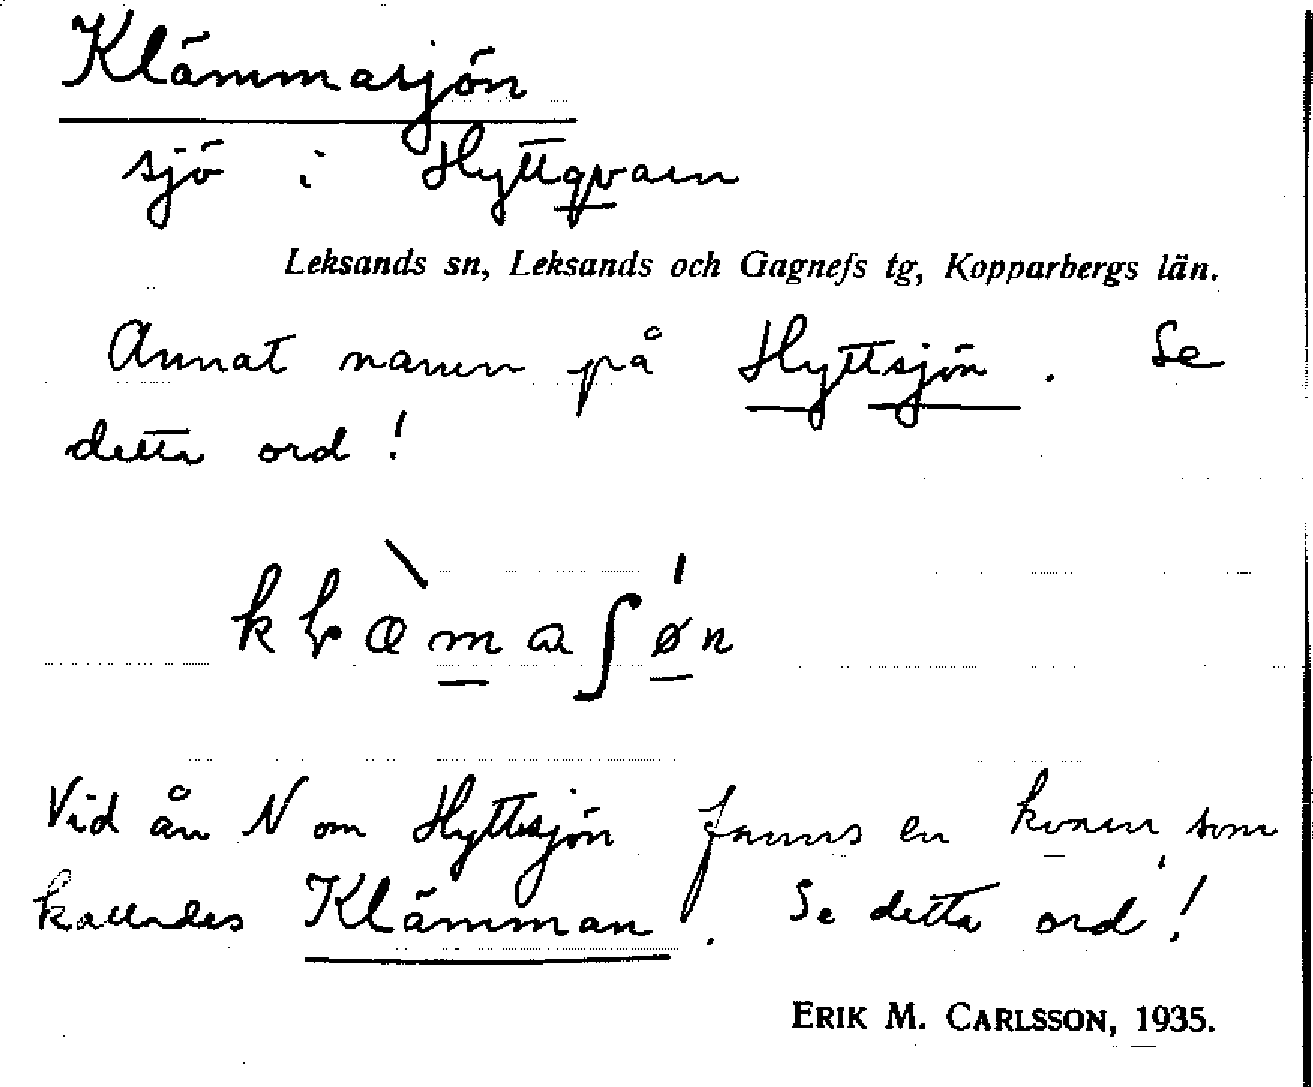 Klämmasjön
sjö i Hyttqvarn
Leksands sn, Leksands och Gagnefs tg, Kopparbergs län.
Annat namn på Hyttsjön. Se
detta ord!
Vid ån N om Hyttsjön fanns en kvarn, som
kallades Klämman. Se detta ord!
ERIK M. CARLSSON, 1935.